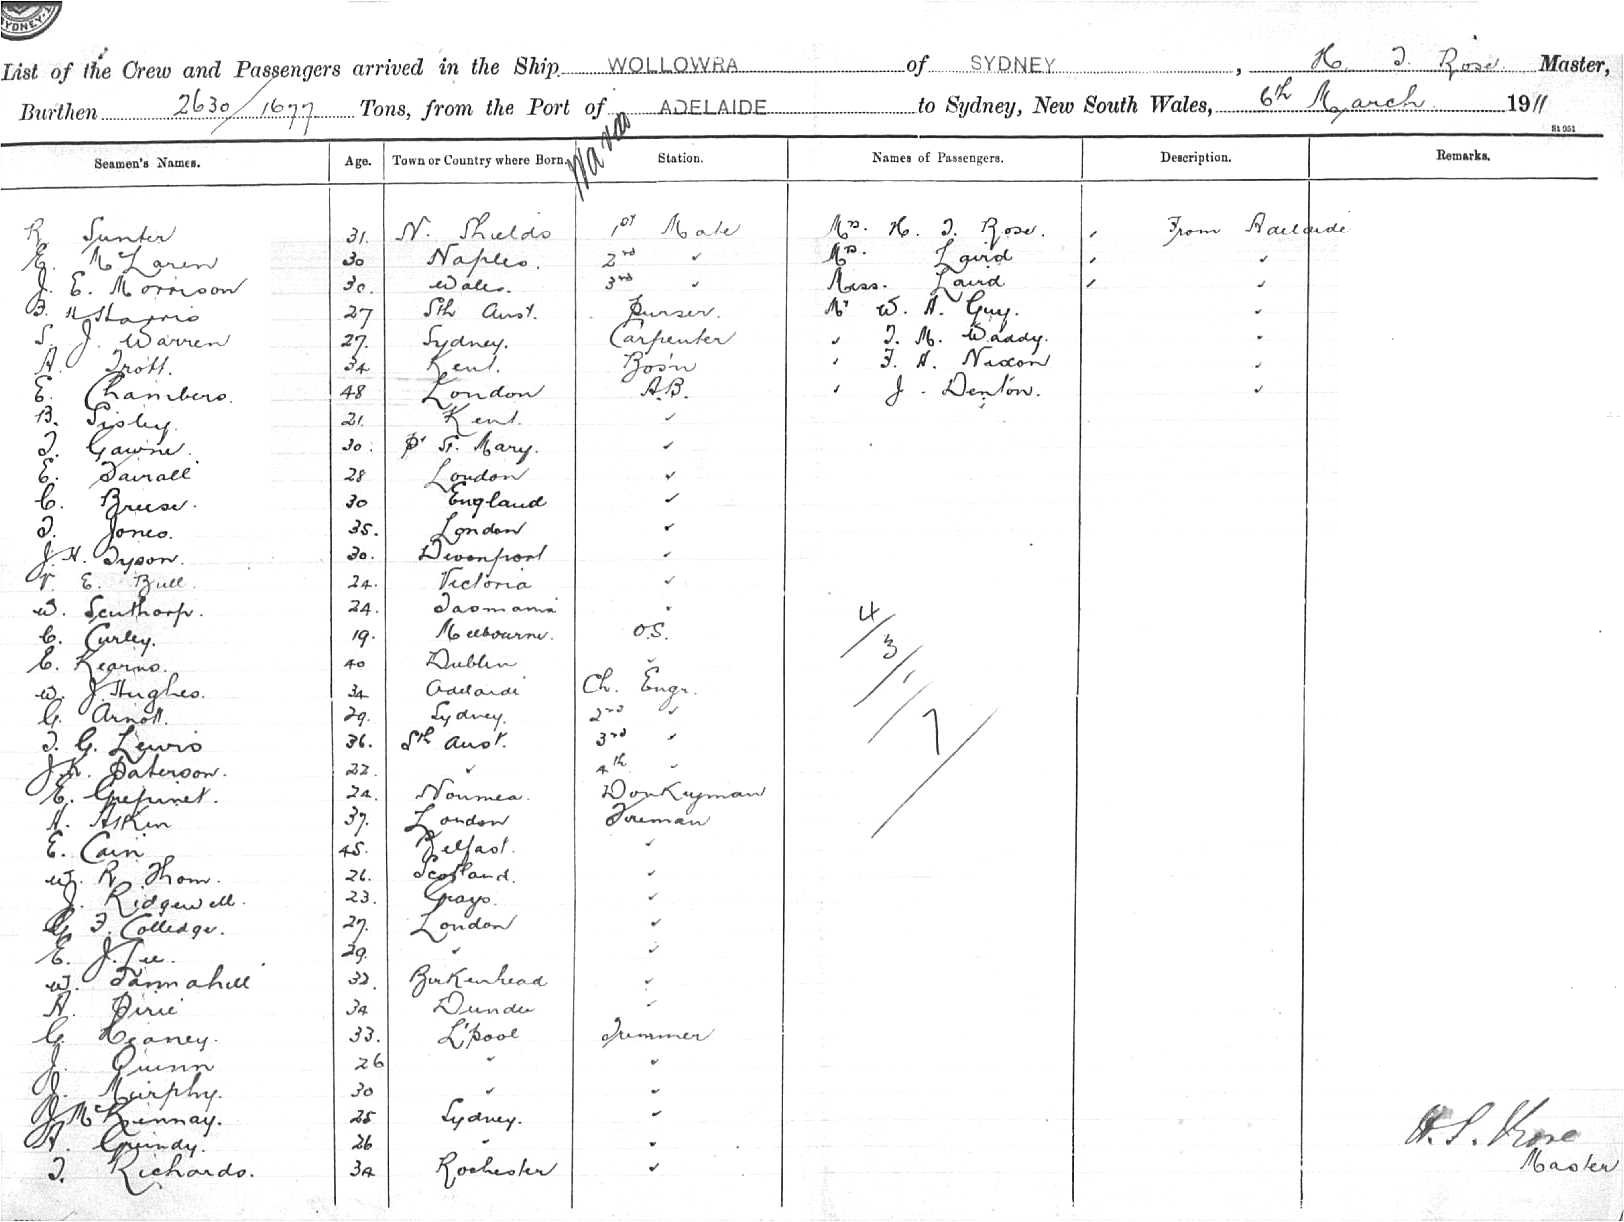 SYDNEY
List of the Crew and Passengers arrived in the Ship WOLLOWRA of SYDNEY, H. T. Rose Master,
Burthen 2630/1677 Tons, from the Port of ADELAIDE to Sydney, New South Wales, 6th March 1911
St 951
Seamen's Names. Age. Town or Country where Born. Station. Names of Passengers. Description. Remarks.
R Sunter 31. N. Shields 1st Mate Mrs. H. T. Rose. , From Adelaide
E. McLaren 30 Naples. 2nd " Mrs. Laird , "
J. E. Morrison 30. Wales. 3rd " Miss. Laird , "
H Harris 27 Sth Aust. Purser. Mr W. A. Guy. "
S. J. Warren 27. Sydney. Carpenter " T. M. Waddy. "
A. Trott. 34 Kent. Bos'n " F. A. Nixon "
E. Chambers. 48 London A.B. " J. Denton. "
B. Sisley. 21. Kent. "
T. Gawne. 30. Pt St. Mary. "
E. Fairall 28 London "
C. Breese. 30 England "
T. Jones. 35. London "
J. H. Tyson. 30. Devonport "
E. Bull. 24. Victoria "
W. Scuthorp. 24. Tasmania "
C. Curley. 19. Melbourne. O.S.
C. Kearns. 40 Dublin "
W. J. Hughes. 34 Adelaide Ch. Engr.
G. Arnott. 29. Sydney. 2nd "
T. G. Lewis 36. Sth Aust. 3rd "
J. K. Paterson. 22. " 4th "
E. 24. Noumea. Donkeyman
A. Askin 37. London Fireman
E. Cain 45. Belfast. "
W. R. Thom. 26. Scotland. "
J. Ridgewell. 23. Grays. "
G. F. Colledge. 27. London "
E. J. Lee. 29. " "
W. Tannahill 32. Birkenhead "
A. Pirie 34 Dundee "
G. Heaney. 33. L'pool Trimmer
J. Quinn 26 " "
J. Murphy. 30 " "
J. McKennay. 25 Sydney. "
A. Grundy. 26 " "
T. Richards. 34 Rochester "
4/3/1/7
H. T. Rose
Master